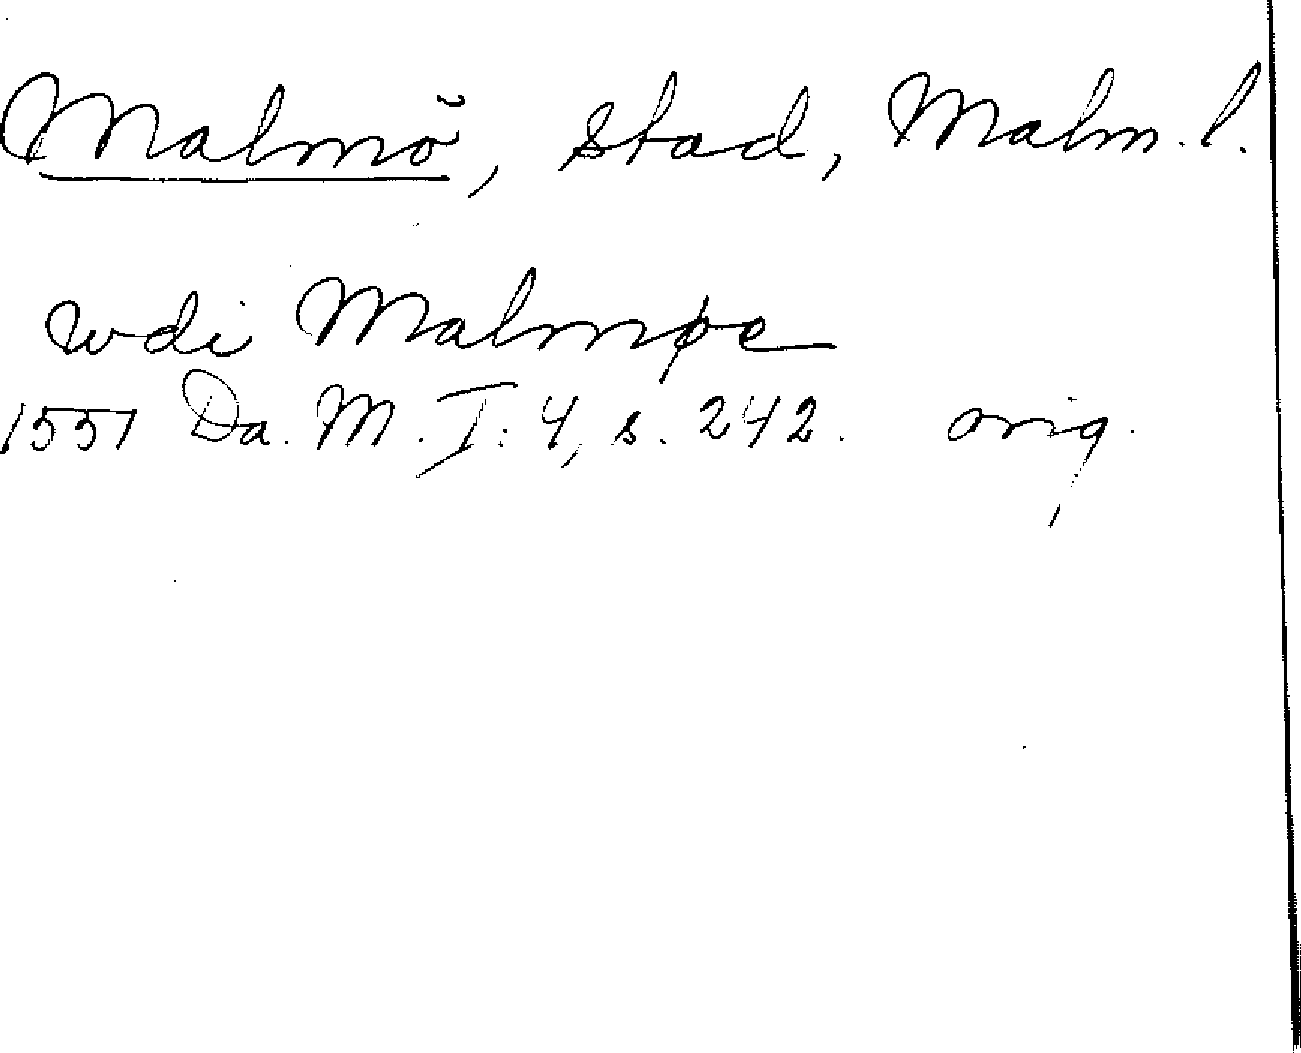 Malmö, stad, Malm. l.
wdi Malmøe
1551 Da. M. I: 4, s. 242. orig.